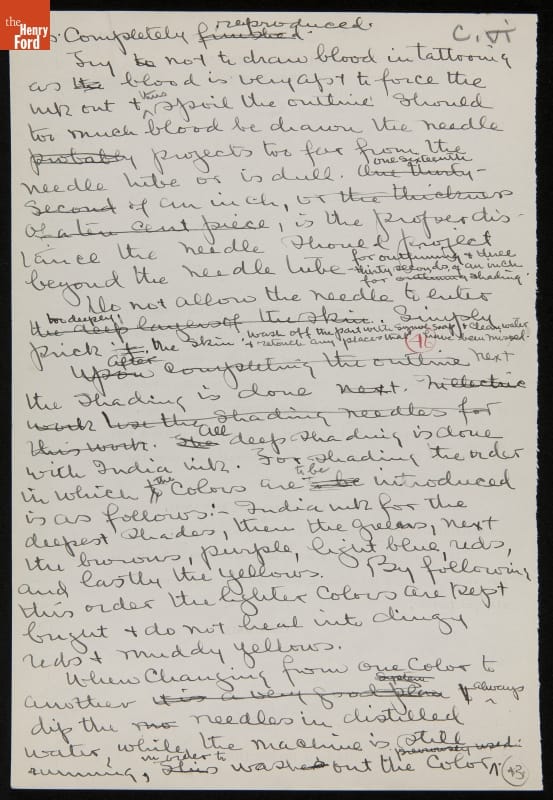 the
Henry
Ford
C. VI
reproduced.
is. Completely finished.
Try to not to draw blood in tattooing
as the blood is very apt to force the
ink out & thus spoil the outline. Should
too much blood be drawn the needle
probably projects too far from the
one sixteenth
needle tube or is dull. One thirty-
second of an inch, or the thickness
of a ten cent piece, is the proper dis-
tance the needle should project
for outlining & three
beyond the needle tube thirty seconds of an inch
for outlining shading.
Do not allow the needle to enter
too deeply.
the deep layers of the skin. Simply
wash off the part with soap & clean water
prick it. the skin & retouch any places that have been missed.
46
after
Upon completing the outline next
the shading is done next. In electric
work use the shading needles for
this work. The All deep shading is done
with India ink. For shading the order
to be
in which the colors are to be introduced
is as follows:- India ink for the
deepest shades, then the greens, next
the browns, purple, light blue, reds,
and lastly the yellows. By following
this order the lighter colors are kept
bright & do not heal into dingy
reds & muddy yellows.
When changing from one color to
system
another it is a very good plan always
dip the needles in distilled
water, while the machine is still
in order to previously used.
running, thus washed out the color
43